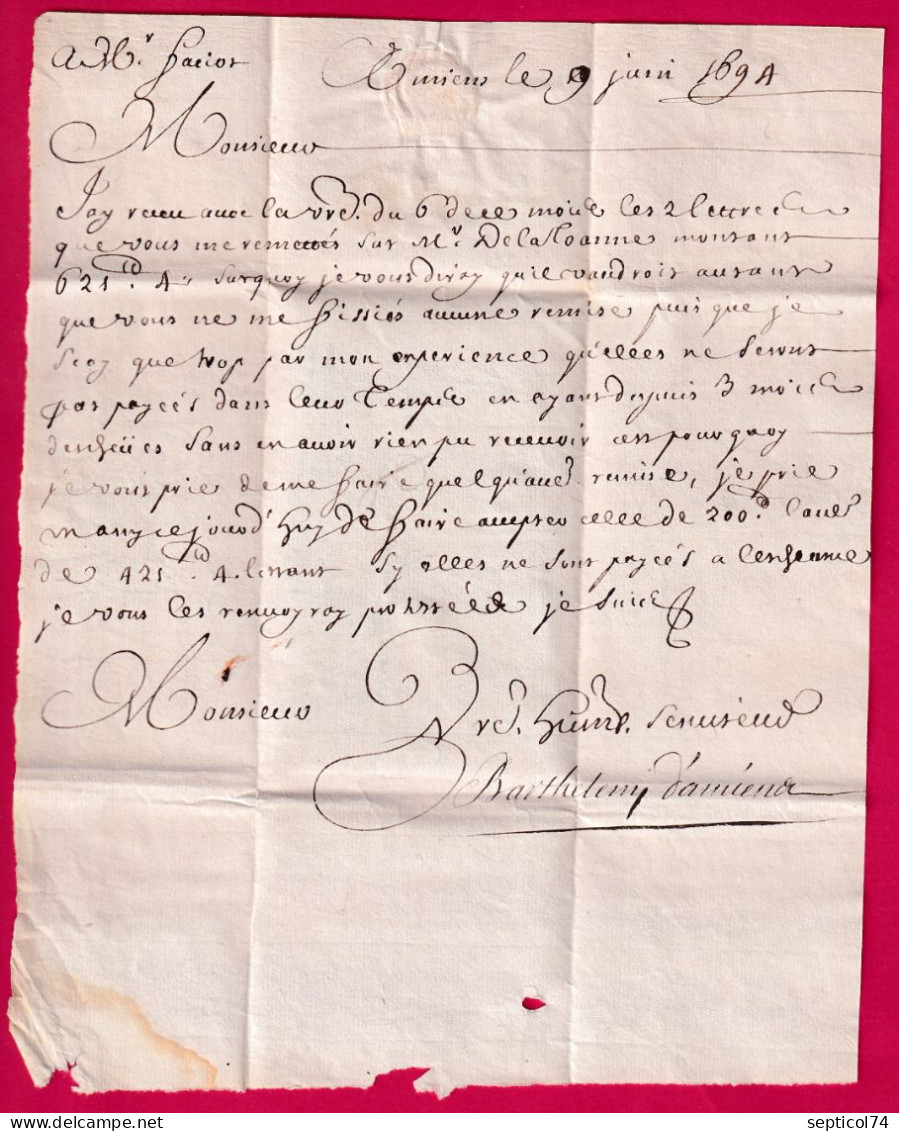 A Mr. hariot Amiens le 9 juin 1694
Monsieur
J'ay receu avec la vre. du 6 de ce mois les 2 lettres
que vous me remettés sur Mr. De la Roanne montant
621 ld. 4s surquoy je vous diray qu'il vaudroit autant
que vous ne me fissiés aucune remise puis que je
scay que trop par mon experience qu'elles ne seront
pas payeés dans leur temps en ayant depuis 3 mois
descheües sans en avoir rien pu recevoir cest pourquoy
je vous prie de me faire quelqu'autre remise, je prie
ce jourd'huy de faire accepter celle de 200 ld. l'autre
de 421 ld. 4. restant sy elles ne sont payeés a l'escheance
je vous les renvoyray protesteés je suis
Monsieur
Vre. humb. serviteur
Barthelemy d'amiens
septicol74